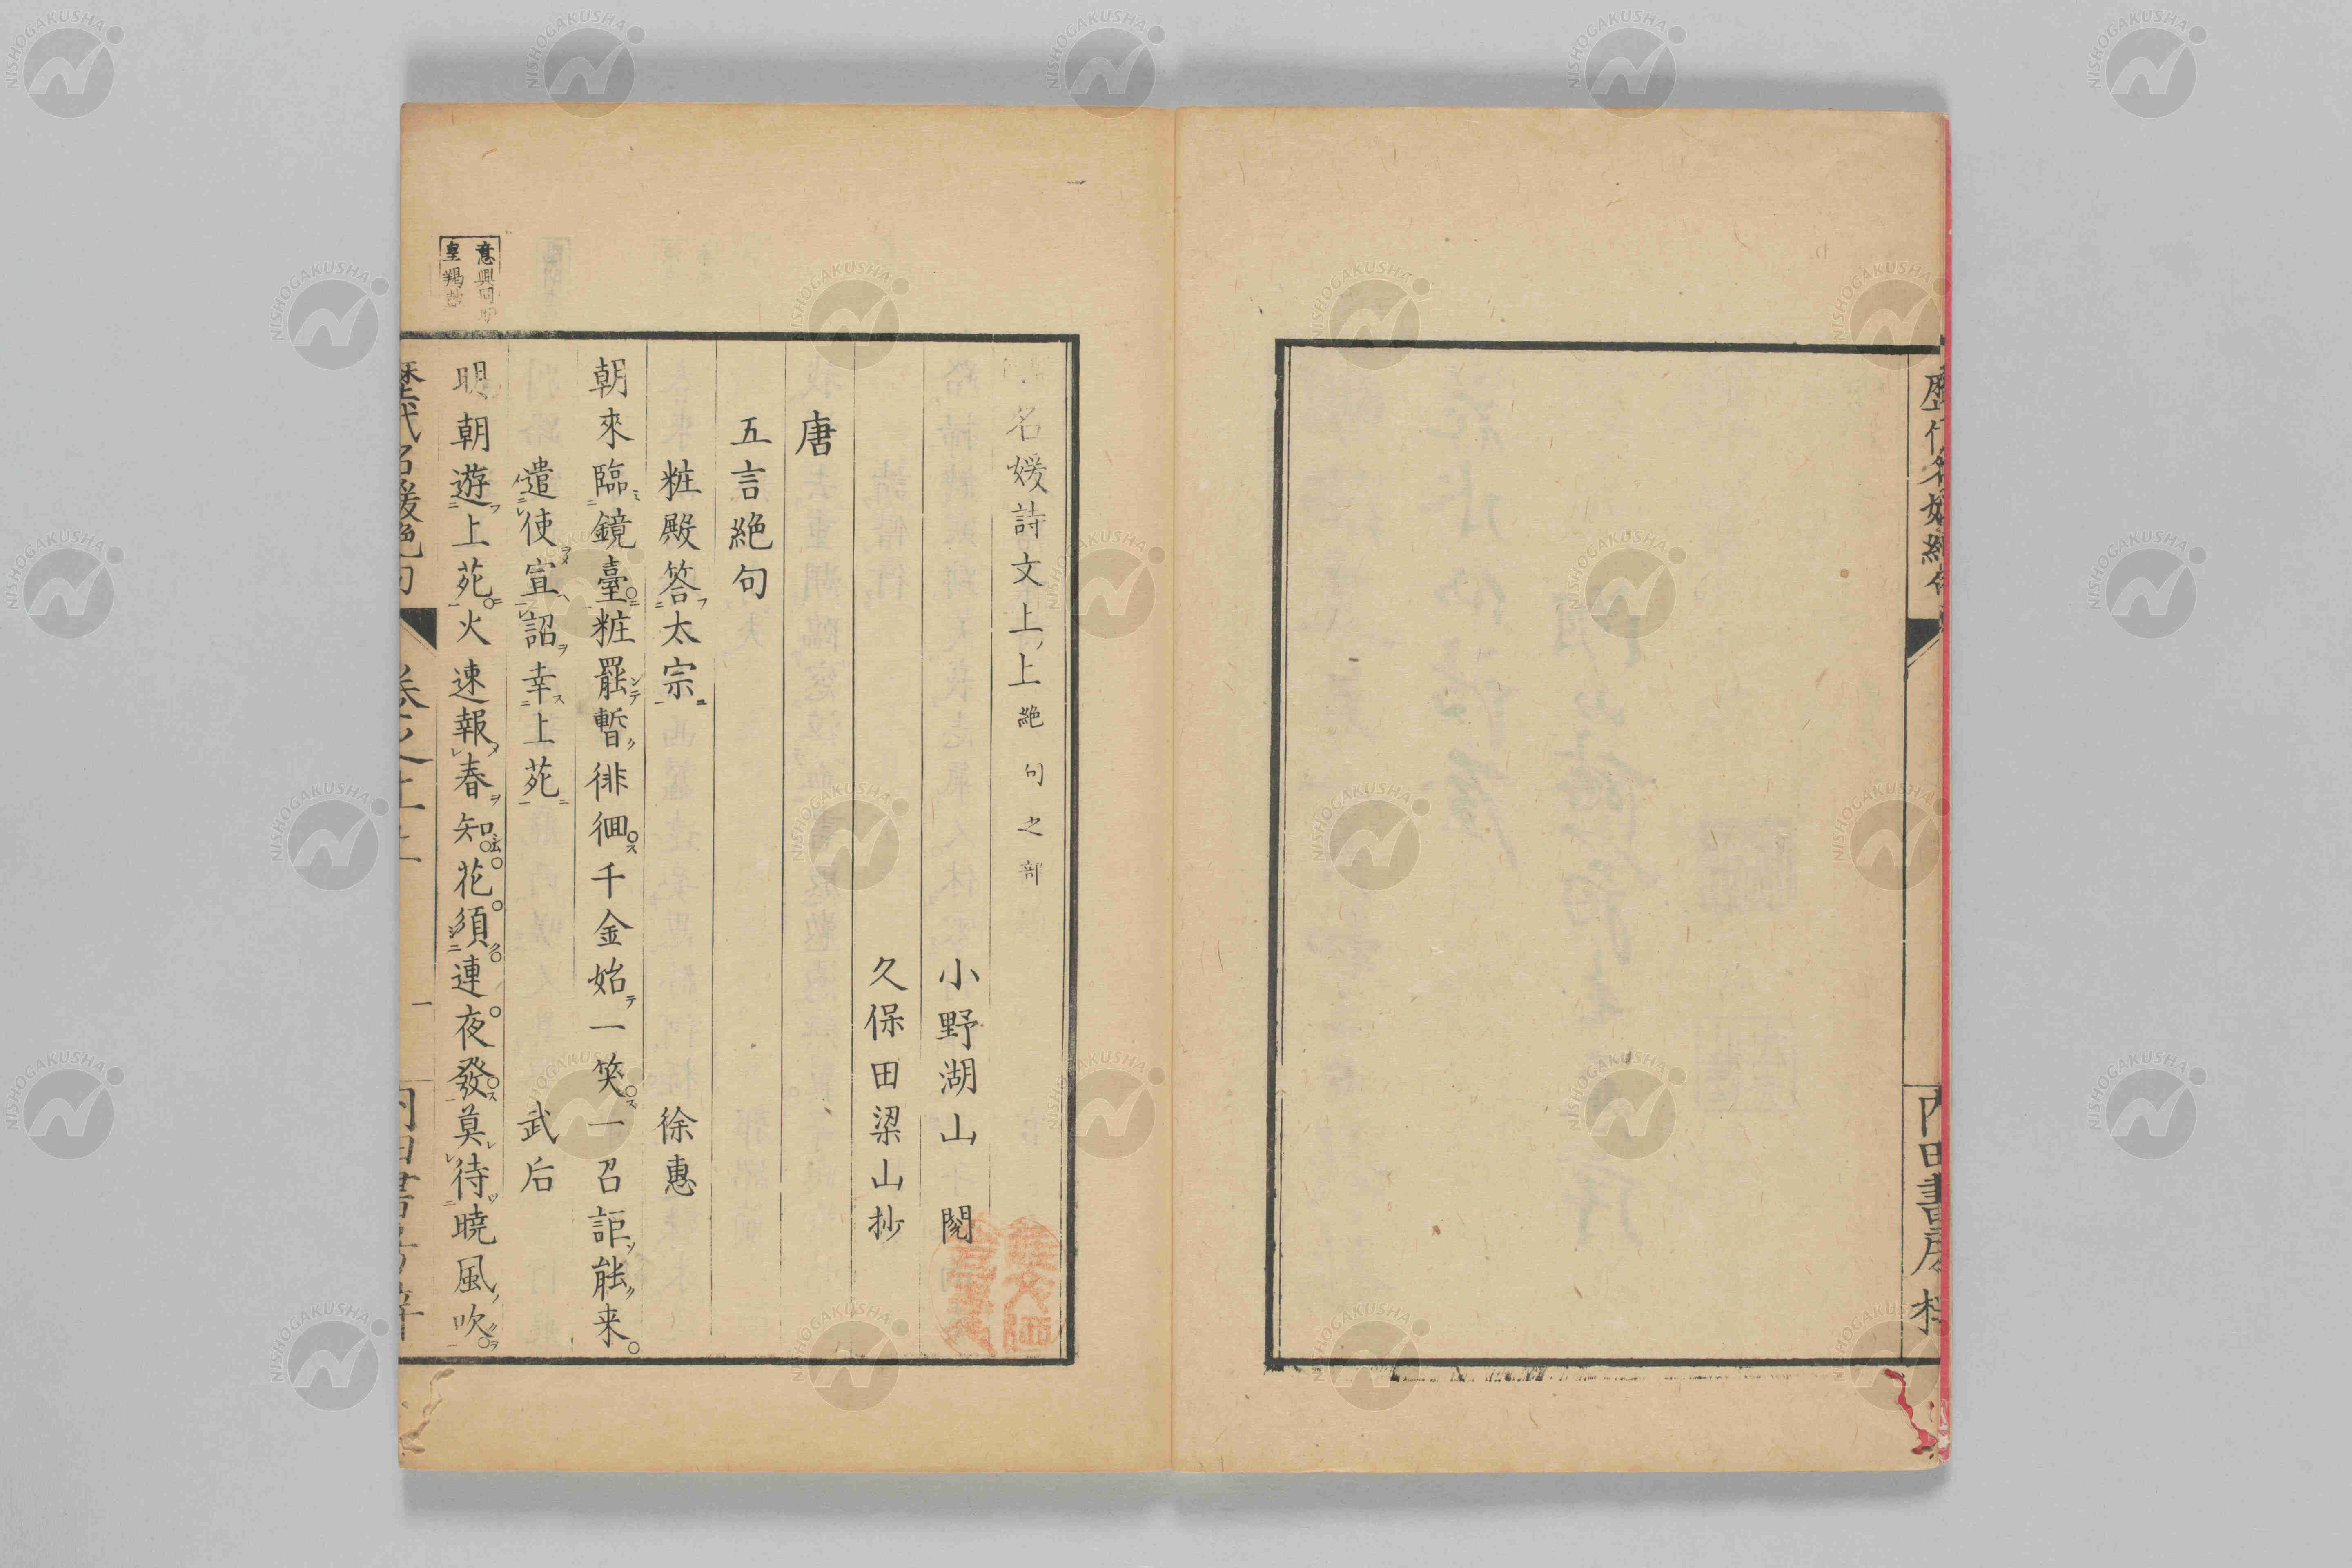 歴代名媛絶句
内田書房梓
名媛詩文上ノ上絶句之部
小野湖山閲
久保田梁山抄
唐
五言絶句
粧殿答太宗 徐惠
朝來臨鏡臺粧罷暫徘徊千金始一笑一召詎能来
遣使宣詔幸上苑 武后
明朝遊上苑火速報春知花須連夜發莫待曉風吹
意興同明
皇羯鼓
歴代名媛絶句 卷之上上 一 内田書房梓
NISHOGAKUSHA